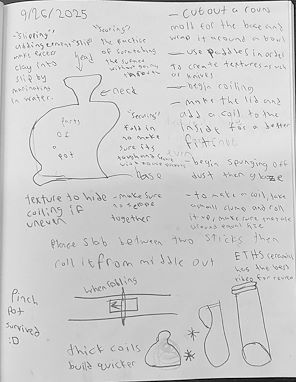 9/26/2025
"Slipping"
adding cement "slip"
make faces
clay into
slip by
marinating
in water.
"Scoring"
the practice
of scratching
the surface
head
neck
Parts
of
a
pot
"Securing"
Fold in
no make
sure its
base
- cut out a round
mold for the base and
wrap it around a bowl
- use paddles in order
to create textures
or knives
- begin coiling
- make the lid and
add a coil to the
inside for a better
fit
- begin sponging off
dust then glaze
texture to hide
coiling if
uneven
- make sure
together
- to make a coil, take
a small clump and roll
it up, make sure its
equal
Place slab between two sticks then
roll it from middle out
ETHS
has the best
when rolling
Pinch
Pot
survived
:D
thick coils
build quicker